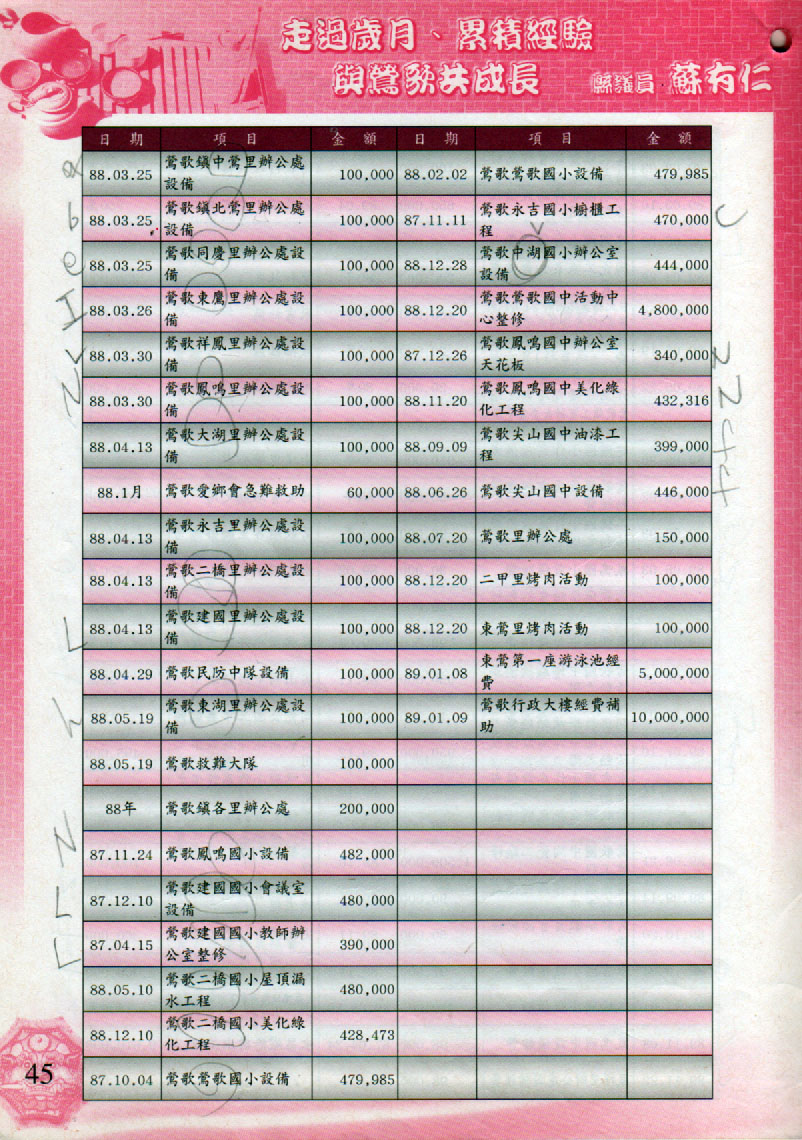 走過歲月、累積經驗
與鶯歌共成長 縣議員 蘇有仁
日 期 項 目 金 額 日 期 項 目 金 額
88.03.25 鶯歌鎮中鶯里辦公處設備 100,000 88.02.02 鶯歌鶯歌國小設備 479,985
88.03.25 鶯歌鎮北鶯里辦公處設備 100,000 87.11.11 鶯歌永吉國小櫥櫃工程 470,000
88.03.25 鶯歌同慶里辦公處設備 100,000 88.12.28 鶯歌中湖國小辦公室設備 444,000
88.03.26 鶯歌東鷹里辦公處設備 100,000 88.12.20 鶯歌鶯歌國中活動中心整修 4,800,000
88.03.30 鶯歌祥鳳里辦公處設備 100,000 87.12.26 鶯歌鳳鳴國中辦公室天花板 340,000
88.03.30 鶯歌鳳鳴里辦公處設備 100,000 88.11.20 鶯歌鳳鳴國中美化綠化工程 432,316
88.04.13 鶯歌大湖里辦公處設備 100,000 88.09.09 鶯歌尖山國中油漆工程 399,000
88.1月 鶯歌愛鄉會急難救助 60,000 88.06.26 鶯歌尖山國中設備 446,000
88.04.13 鶯歌永吉里辦公處設備 100,000 88.07.20 鶯歌里辦公處 150,000
88.04.13 鶯歌二橋里辦公處設備 100,000 88.12.20 二甲里烤肉活動 100,000
88.04.13 鶯歌建國里辦公處設備 100,000 88.12.20 東鶯里烤肉活動 100,000
88.04.29 鶯歌民防中隊設備 100,000 89.01.08 東鶯第一座游泳池經費 5,000,000
88.05.19 鶯歌東湖里辦公處設備 100,000 89.01.09 鶯歌行政大樓經費補助 10,000,000
88.05.19 鶯歌救難大隊 100,000
88年 鶯歌鎮各里辦公處 200,000
87.11.24 鶯歌鳳鳴國小設備 482,000
87.12.10 鶯歌建國國小會議室設備 480,000
87.04.15 鶯歌建國國小教師辦公室整修 390,000
88.05.10 鶯歌二橋國小屋頂漏水工程 480,000
88.12.10 鶯歌二橋國小美化綠化工程 428,473
87.10.04 鶯歌鶯歌國小設備 479,985
45